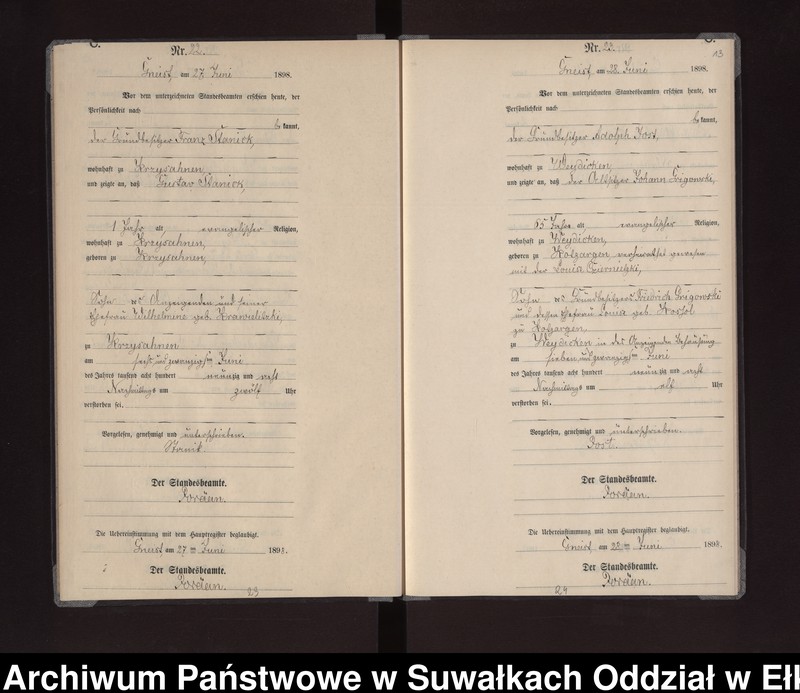 C.
Nr. 22.
Gneist am 27. Juni 1898.
Vor dem unterzeichneten Standesbeamten erschien heute, der
Persönlichkeit nach
be kannt,
der Grundbesitzer Franz Stanick,
wohnhaft zu Kreysahnen,
und zeigte an, daß Gustav Stanick,
1 Jahr alt, evangelischer Religion,
wohnhaft zu Kreysahnen,
geboren zu Kreysahnen,
Sohn des Anzeigenden und seiner
Ehefrau Wilhelmine geb.
zu Kreysahnen
am sechs und zwanzigsten Juni
des Jahres tausend acht hundert neunzig und acht
Nachmittags um zwölf Uhr
verstorben sei.
Vorgelesen, genehmigt und unterschrieben.
Stanik
Der Standesbeamte.
Die Uebereinstimmung mit dem Hauptregister beglaubigt.
Gneist am 27ten Juni 1898.
Der Standesbeamte.
23
C.
Nr. 23.
13
Gneist am 28. Juni 1898.
Vor dem unterzeichneten Standesbeamten erschien heute, der
Persönlichkeit nach
be kannt,
der Grundbesitzer Adolph Jost,
wohnhaft zu Weydicken,
und zeigte an, daß der Altsitzer Johann Grigowski,
65 Jahre alt, evangelischer Religion,
wohnhaft zu Weydicken,
geboren zu verheirathet gewesen
mit der Louise
Sohn des Grundbesitzers Friedrich Grigowski
und dessen Ehefrau Louise geb.
zu
zu Weydicken in des Anzeigenden Behausung
am sieben und zwanzigsten Juni
des Jahres tausend acht hundert neunzig und acht
Nachmittags um elf Uhr
verstorben sei.
Vorgelesen, genehmigt und unterschrieben.
Jost.
Der Standesbeamte.
Die Uebereinstimmung mit dem Hauptregister beglaubigt.
Gneist am Juni 1898.
Der Standesbeamte.
24
Archiwum Państwowe w Suwałkach Oddział w Eł